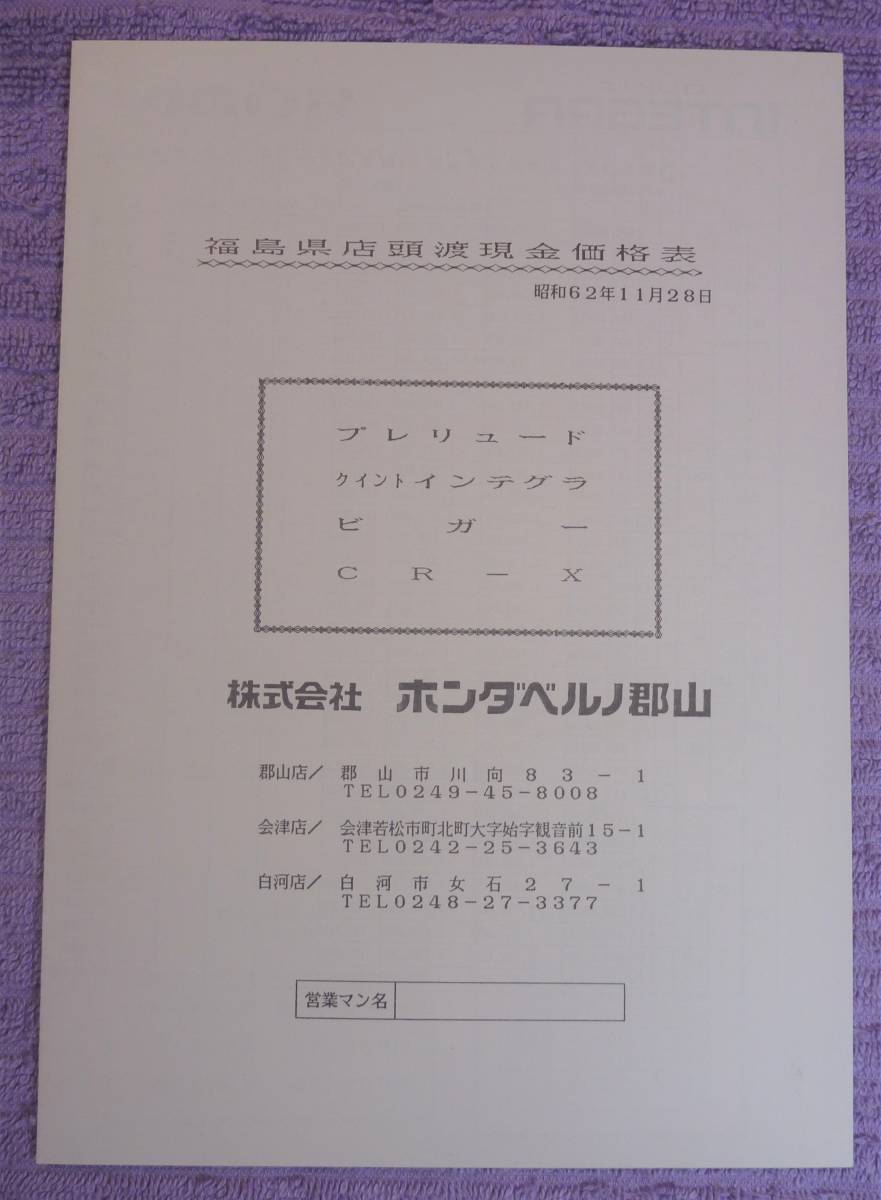 福島県店頭渡現金価格表
昭和62年11月28日
プレリュード
クイントインテグラ
ビガー
CR-X
株式会社 ホンダベルノ郡山
郡山店/ 郡山市川向83-1
TEL0249-45-8008
会津店/ 会津若松市町北町大字始字観音前15-1
TEL0242-25-3643
白河店/ 白河市女石27-1
TEL0248-27-3377
営業マン名